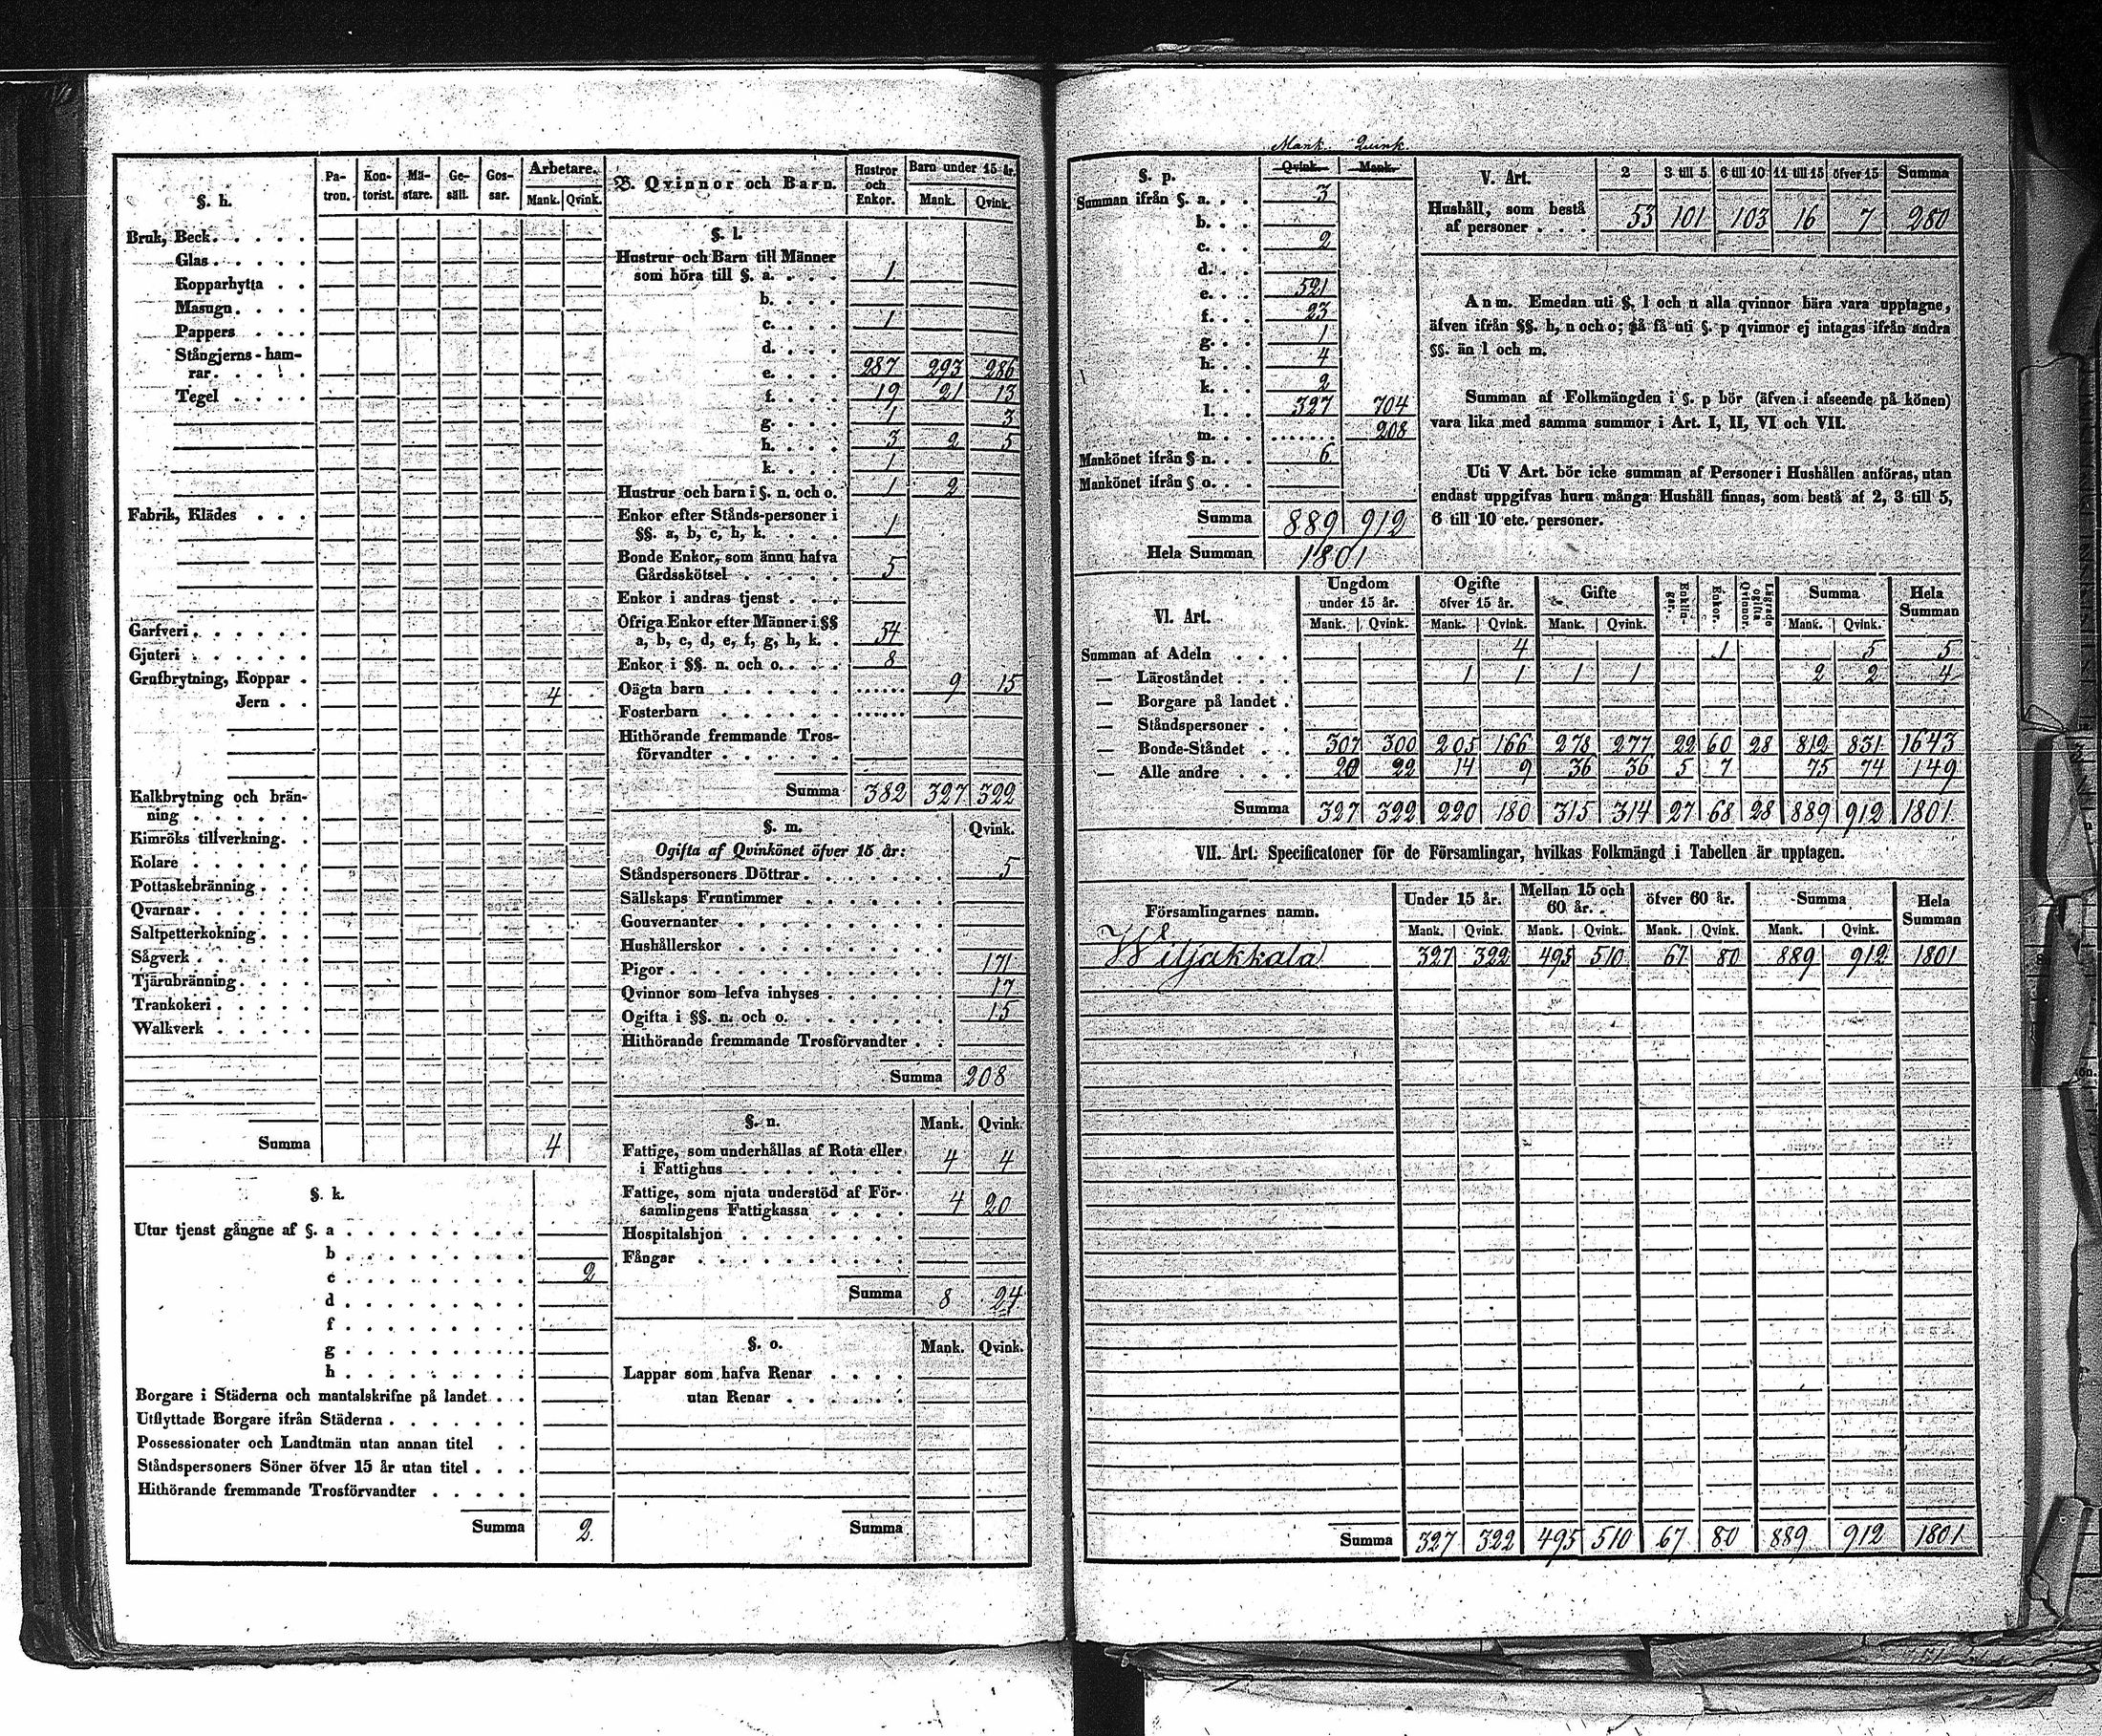 §. h. Pa-tron. Kon-torist. Mä-stare. Ge-säll. Gos-sar. Arbetare. Mank. Qvink.
Bruk, Beck
Glas
Kopparhytta
Masugn
Pappers
Stångjerns-ham-
rar
Tegel
Fabrik, Klädes
Garfveri
Gjuteri
Grufbrytning, Koppar
Jern 4
Kalkbrytning och brän-
ning
Kimröks tillverkning
Kolare
Pottaskebränning
Qvarnar
Saltpetterkokning
Sågverk
Tjärubränning
Trankokeri
Walkverk
Summa 4
§. k.
Utur tjenst gångne af §. a
b
c 2
d
f
g
h
Borgare i Städerna och mantalskrifne på landet
Utflyttade Borgare ifrån Städerna
Possessionater och Landtmän utan annan titel
Ståndspersoners Söner öfver 15 år utan titel
Hithörande fremmande Trosförvandter
Summa 2
B. Qvinnor och Barn. Hustror och Enkor. Barn under 15 år. Mank. Qvink.
§. l.
Hustrur och Barn till Männer
som höra till §. a. 1
b.
c. 1
d.
e. 287 293 286
f. 19 21 13
g. 1 3
h. 3 2 5
k. 1
Hustrur och barn i §. n. och o. 1 2
Enkor efter Stånds-personer i
§§. a, b, c, h, k. 1
Bonde Enkor, som ännu hafva
Gårdsskötsel 5
Enkor i andras tjenst
Öfriga Enkor efter Männer i §§
a, b, c, d, e, f, g, h, k. 54
Enkor i §§. n. och o. 8
Oägta barn 9 15
Fosterbarn
Hithörande fremmande Tros-
förvandter
Summa 382 327 322
§. m. Qvink.
Ogifta af Qvinkönet öfver 15 år:
Ståndspersoners Döttrar 5
Sällskaps Fruntimmer
Gouvernanter
Hushållerskor
Pigor 171
Qvinnor som lefva inhyses 17
Ogifta i §§. n. och o. 15
Hithörande fremmande Trosförvandter
Summa 208
§. n. Mank. Qvink.
Fattige, som underhållas af Rota eller
i Fattighus 4 4
Fattige, som njuta understöd af För-
samlingens Fattigkassa 4 20
Hospitalshjon
Fångar
Summa 8 24
§. o. Mank. Qvink.
Lappar som hafva Renar
utan Renar
Summa
Mank. Quink.
§. p. Qvink. Mank.
Summan ifrån §. a. 3
b.
c. 2
d.
e. 521
f. 23
g. 1
h. 4
k. 2
l. 327 704
m. 208
Mankönet ifrån § n. 6
Mankönet ifrån § o.
Summa 889 912
Hela Summan 1801
V. Art. 2 3 till 5 6 till 10 11 till 15 öfver 15 Summa
Hushåll, som bestå
af personer 53 101 103 16 7 280
Anm. Emedan uti §. l och n alla qvinnor böra vara upptagne,
äfven ifrån §§. h, n och o; så få uti §. p qvinnor ej intagas ifrån andra
§§. än l och m.
Summan af Folkmängden i §. p bör (äfven i afseende på könen)
vara lika med samma summor i Art. I, II, VI och VII.
Uti V Art. bör icke summan af Personer i Hushållen anföras, utan
endast uppgifvas huru många Hushåll finnas, som bestå af 2, 3 till 5,
6 till 10 etc. personer.
VI. Art. Ungdom under 15 år. Ogifte öfver 15 år. Gifte Enklin-gar. Enkor. Lägrade ogifta Qvinnor. Summa Hela Summan
Mank. Qvink. Mank. Qvink. Mank. Qvink. Mank. Qvink.
Summan af Adeln 4 1 5 5
— Läroståndet 1 1 1 1 2 2 4
— Borgare på landet
— Ståndspersoner
— Bonde-Ståndet 307 300 205 166 278 277 22 60 28 812 831 1643
— Alle andre 20 22 14 9 36 36 5 7 75 74 149
Summa 327 322 220 180 315 314 27 68 28 889 912 1801
VII. Art. Specificatoner för de Församlingar, hvilkas Folkmängd i Tabellen är upptagen.
Församlingarnes namn. Under 15 år. Mellan 15 och 60 år. öfver 60 år. Summa Hela Summan
Mank. Qvink. Mank. Qvink. Mank. Qvink. Mank. Qvink.
Wiljakkala 327 322 495 510 67 80 889 912 1801
Summa 327 322 495 510 67 80 889 912 1801